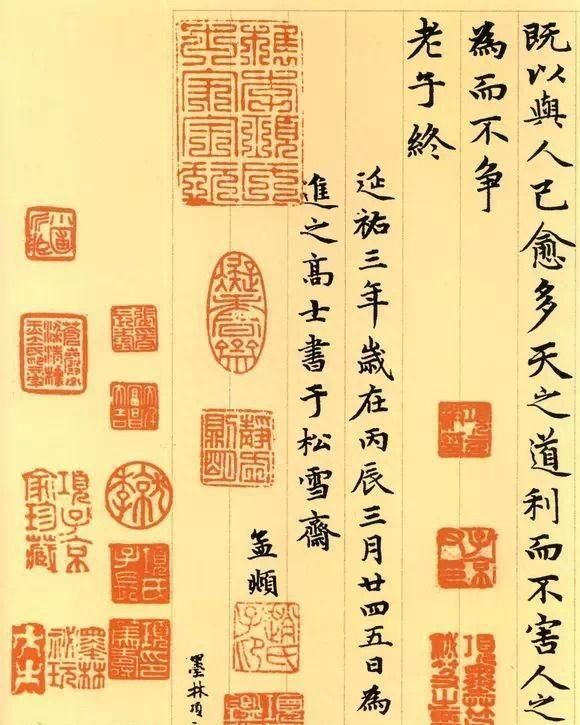 既以與人己愈多天之道利而不害人之
為而不争
老子終
延祐三年歲在丙辰三月廿四五日為
進之高士書于松雪齋
孟頫
墨林項
項子京
家珍藏
墨林
祕玩
趙氏
子印
項氏
子長
子京